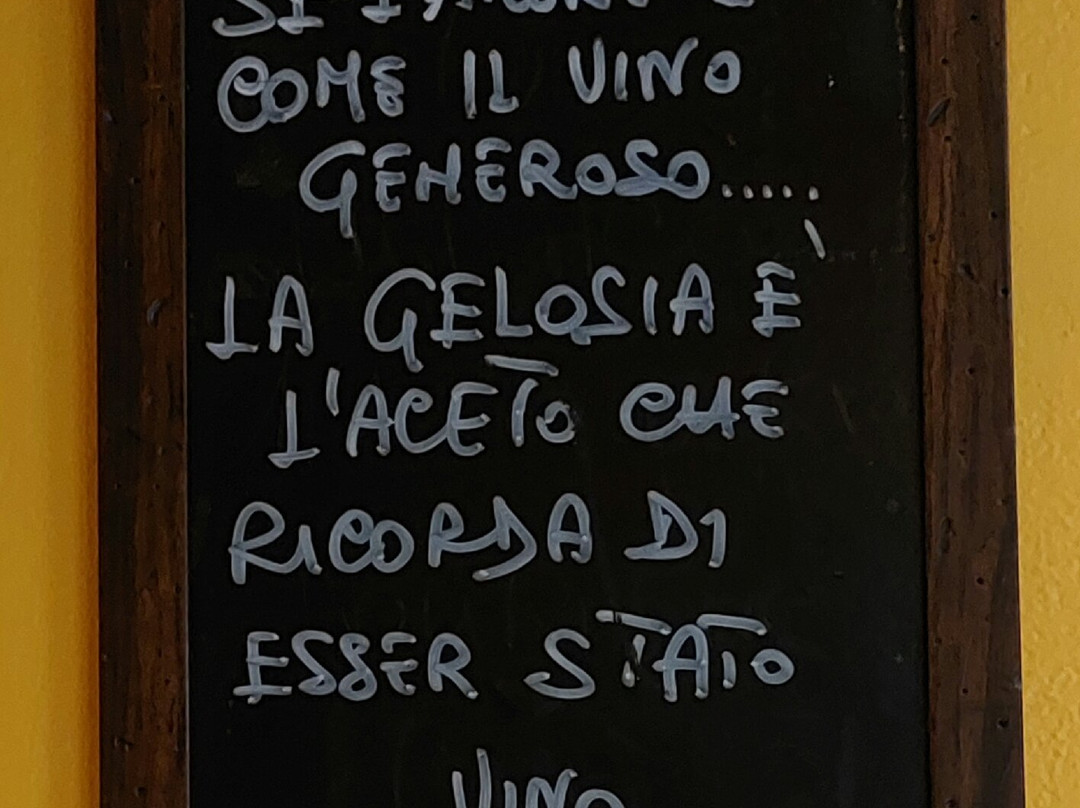 COME IL VINO
GENEROSO.....
LA GELOSIA È
L'ACETO CHE
RICORDA DI
ESSER STATO
VINO